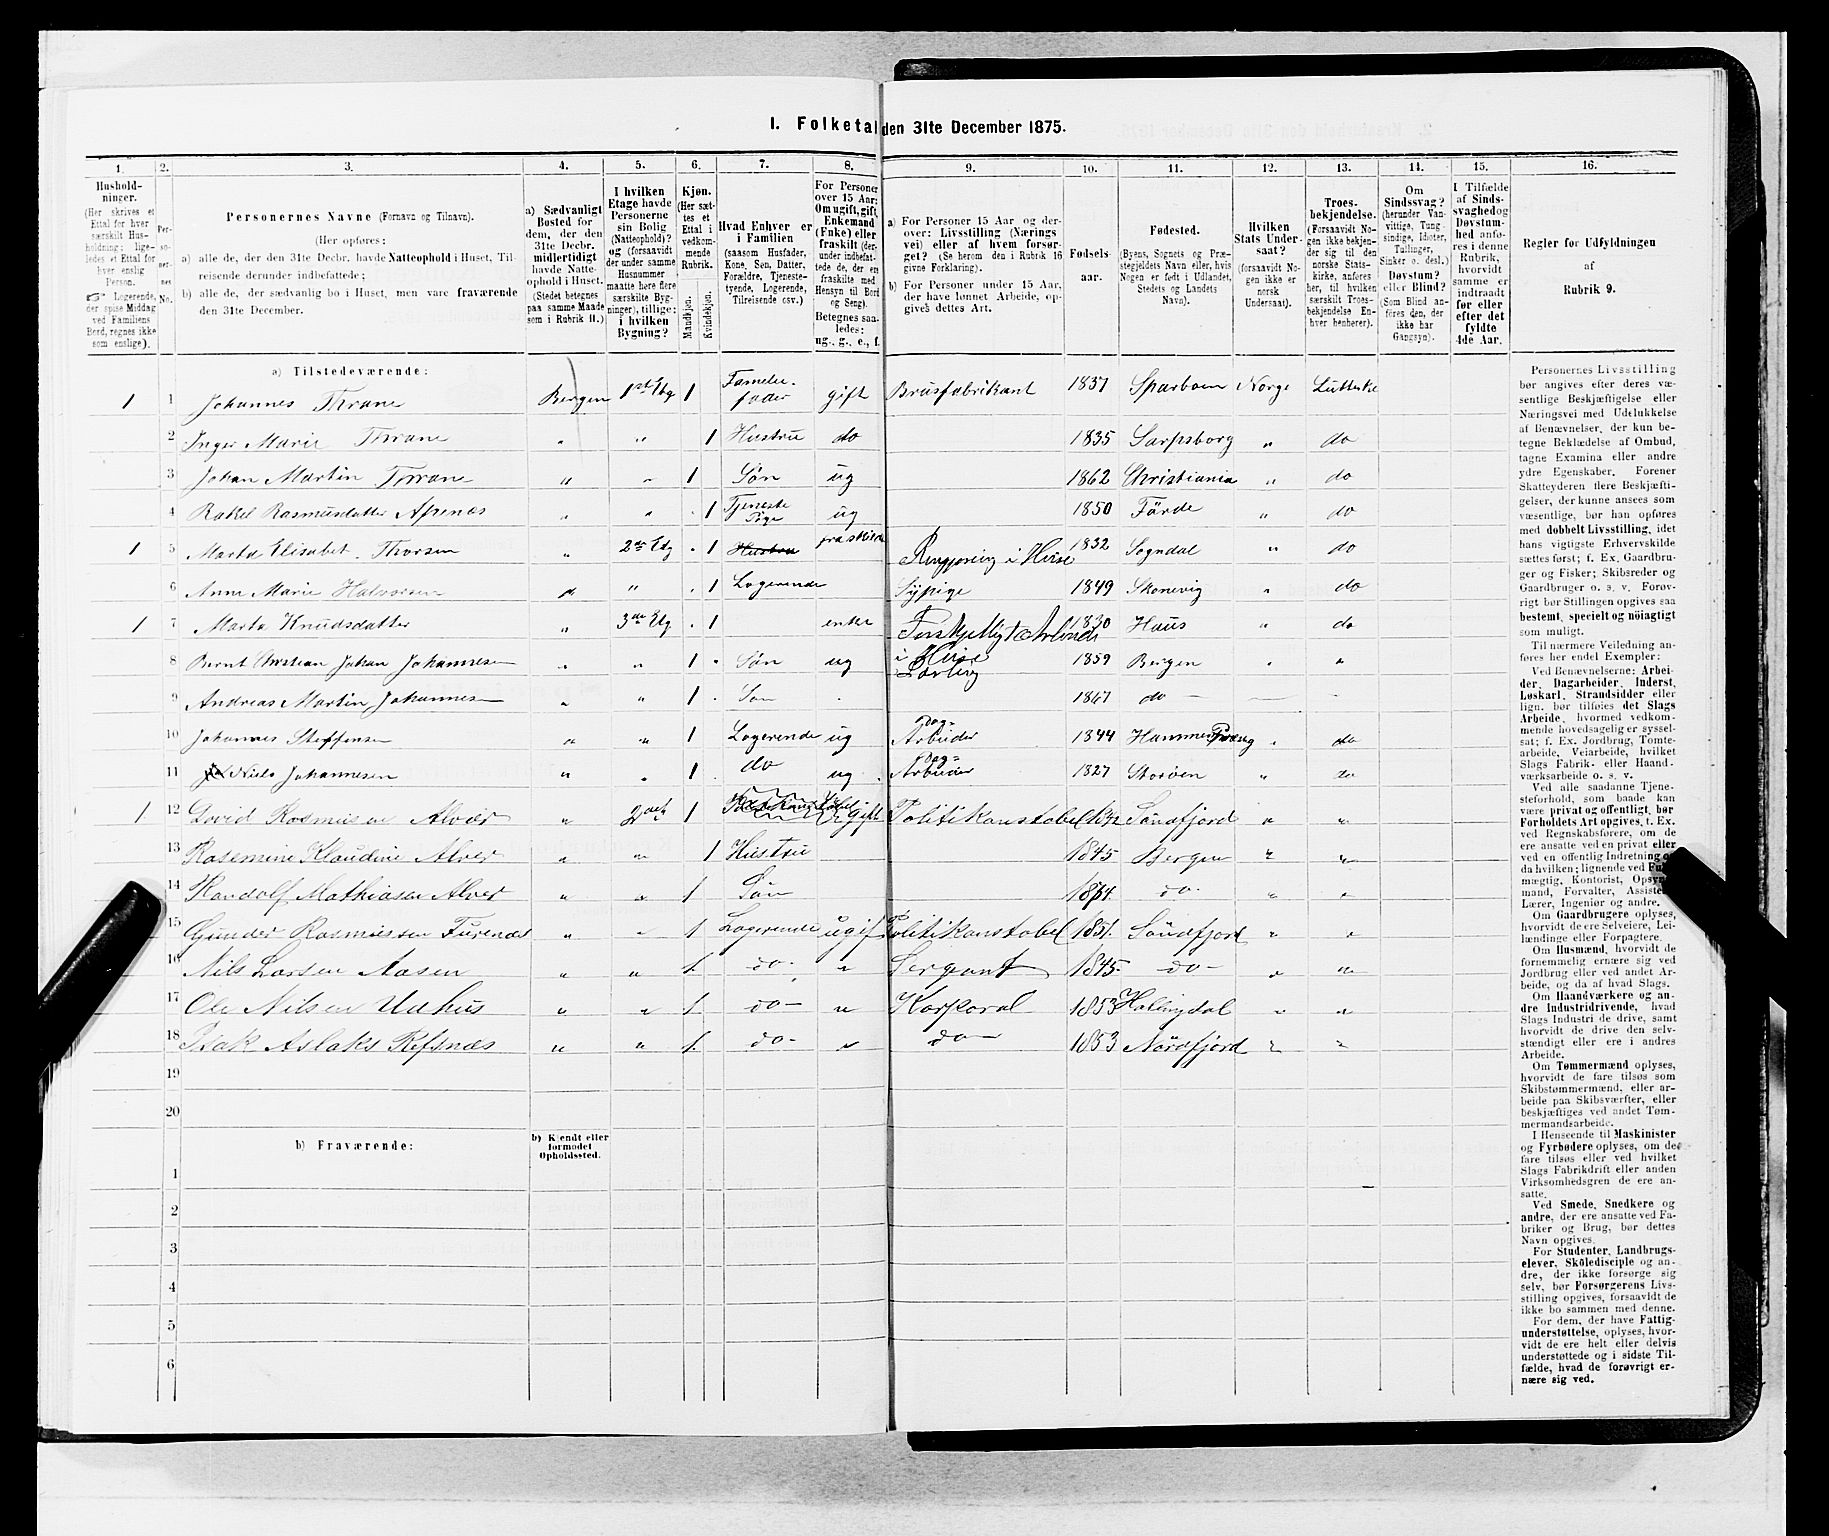 I. Folketal den 31te December 1875.
1. 2. 3. 4. 5. 6. 7. 8. 9. 10. 11. 12. 13. 14. 15. 16.
Husholdninger.
(Her skrives et
Ettal for hver
særskilt Husholdning;
ligeledes
et Ettal for
hver enslig
Person.
☞ Logerende,
der spise Middag
ved Familiens
Bord, regnes ikke
som enslige).
Personernes No.
Personernes Navne (Fornavn og Tilnavn).
(Her opføres:
a) alle de, der den 31te Decbr. havde Natteophold i Huset, Tilreisende
derunder indbefattede;
b) alle de, der sædvanlig bo i Huset, men vare fraværende
den 31te December.
a) Sædvanligt
Bosted for
dem, der den
31te Decbr.
midlertidigt
havde Natteophold
i Huset.
(Stedet betegnes
paa samme Maade
som i Rubrik 11.)
I hvilken
Etage havde
Personerne
sin Bolig
(Natteophold)?
og (forsaavidt
der under samme
Husnummer
maatte høre flere
særskilte Bygninger),
tillige:
i hvilken
Bygning?
Kjøn.
(Her sættes
et
Ettal i
vedkommende
Rubrik.
Mandkjøn.
Kvindekjøn.
Hvad Enhver er
i Familien
(saasom Husfader,
Kone, Søn, Datter,
Forældre, Tjenestetyende,
Logerende,
Tilreisende osv.)
For Personer
over 15 Aar:
Om ugift, gift,
Enkemand
(Enke) eller
fraskilt (derunder
indbefattede
de, der ere
fraskilte med
Hensyn til Bord
og Seng).
Betegnes saaledes:
ug., g., e., f.
a) For Personer 15 Aar og derover:
Livsstilling (Næringsvei)
eller af hvem forsørget?
(Se herom den i Rubrik 16
givne Forklaring).
b) For Personer under 15 Aar,
der have lønnet Arbeide, opgives
dettes Art.
Fødselsaar.
Fødested.
(Byens, Sognets og Præstegjeldets
Navn eller, hvis
Nogen er født i Udlandet,
Stedets og Landets
Navn).
Hvilken
Stats Undersaat?
(forsaavidt Nogen
ikke er
norsk
Undersaat).
Troesbekjendelse.
(Forsaavidt Nogen
ikke bekjender
sig til den
norske Statskirke,
anføres
her, til hvilken
særskilt Troesbekjendelse
Enhver
henhører).
Om
Sindssvag?
(herunder Vanvittige,
Tungsindige,
Idioter,
Tullinger,
Sinker o. desl.)
Døvstum?
eller Blind?
(Som Blind anføres
den, der
ikke har
Gangsyn).
I Tilfælde
af Sindssvaghed
og
Døvstumhed
anføres
i denne
Rubrik,
hvorvidt
samme er
indtraadt
før eller
efter det
fyldte
4de Aar.
Regler for Udfyldningen
af
Rubrik 9.
a) Tilstedeværende:
1 1 Johannes Thrane Bergen 1st Etg 1 Famelie fader gift Brusfabrikant 1837 Sparboen Norge Lutterske
2 Inger Marie Thrane " " 1 Hustru do 1835 Sarpsborg " do
3 Johan Martin Thrane " " 1 Søn ug 1862 Christiania " do
4 Rakel Rasmusdatter " " 1 Tjeneste Pige ug 1850 Förde " do
1 5 Marta Elisabet Thorsen " 2den Etg 1 Hustru fraskildt Rengjöring i Huse 1832 Sogndal " do
6 Anne Marie Halvorsen " " 1 Logerende Sypige 1849 Skonevig " do
1 7 Marta Knudsdatter " 3de Etg 1 enke Forskjelligt Arbeide i Huse 1830 Haus " do
8 Bernt Christian Johan Johannesen " " 1 Søn ug Lærling 1859 Bergen " "
9 Andreas Martin Johannesen " " 1 Søn 1867 do — —
10 Johannes Steffensen " " 1 Logerende ug Dag-Arbeider 1844 Hammer " do
11 Niels Johannesen " " 1 do ug Dag-Arbeider 1827 Storöen " do
1 12 Rasmusen Alvær " 1 gift Politikonstabel Söndfjord " "
13 Rasemine Klaudine Alver " " 1 Hustru 1845 Bergen " "
14 Randolf Mathiasen Alver " " 1 Søn do " "
15 Gunder Rasmussen Furenæs " " 1 Logerende ugift Politikonstabel 1851. Söndfjord " "
16 Nils Larsen Aasen " " 1. do " Sergeant 1845. do " "
17 Ole Nilsen " " 1. do " Korporal 1853 Hallingdal " "
18 Isak Aslaks Refsnæs " " 1. do " do 1853 Nordfjord " "
19
20
b) Fraværende:
b) Kjendt eller
formodet
Opholdssted.
1
2
3
4
5
6
Personernes Livsstilling
bør angives efter deres væsentlige
Beskjæftigelse eller
Næringsvei med Udelukkelse
af Benævnelser, der kun betegne
Beklædelse af Ombud,
tagne Examina eller andre
ydre Egenskaber. Forener
Skatteyderen flere Beskjæftigelser,
der kunne ansees som
væsentlige, bør han opføres
med dobbelt Livsstilling, idet
hans vigtigste Erhvervskilde
sættes først; f. Ex. Gaardbruger
og Fisker; Skibsreder og
Gaardbruger o. s. v. Forøvrigt
bør Stillingen opgives saa
bestemt, specielt og nøiagtigt
som muligt.
Til nærmere Veiledning anføres
her endel Exempler:
Ved Benævnelserne: Arbeider,
Dagarbeider, Inderst,
Løskarl, Strandsidder eller
lign. bør tilføies det Slags
Arbeide, hvormed vedkommende
hovedsagelig er sysselsat;
f. Ex. Jordbrug, Tomtearbeide,
Veiarbeide, hvilket
Slags Fabrik- eller Haandværksarbeide
o. s. v.
Ved alle saadanne Tjenesteforhold,
som baade kan
være privat og offentligt, bør
Forholdets Art opgives, t. Ex.
ved Regnskabsførere, om de
ere ansatte ved en privat eller
ved en offentlig Indretning og
da hvilken; lignende ved Fuldmægtig,
Kontorist, Opsynsmand,
Forvalter, Assistent,
Lærer, Ingeniør og andre.
Om Gaardbrugere oplyses,
hvorvidt de ere Selveiere, Leilændinge
eller Forpagtere.
Om Husmænd, hvorvidt de
fornemmelig ernære sig ved
Jordbrug eller ved andet Arbeide,
og da af hvad Slags.
Om Haandværkere og andre
Industridrivende, hvad
Slags Industri de drive, samt
hvorvidt de drive den selvstændigt
eller ere i andres
Arbeide.
Om Tømmermænd oplyses,
hvorvidt de fare tilsøs som
Skibstømmermænd, eller arbeide
paa Skibsværfter, eller
beskjæftiges ved andet Tømmermandsarbeide.
I Henseende til Maskinister
og Fyrbødere oplyses, om de
fare tilsøs eller ved hvilket
Slags Fabrikdrift eller anden
Virksomhedsgren de ere ansatte.
Ved Smede, Snedkere og
andre, der ere ansatte ved Fabriker
og Brug, bør dettes
Navn opgives.
For Studenter, Landbrugselever,
Skoledisciple og andre,
der ikke forsørge sig
selv, bør Forsørgerens Livsstilling
opgives, forsaavidt de
ikke bo sammen med denne.
For dem, der have Fattigunderstøttelse,
oplyses, hvorvidt
de ere helt eller delvis
understøttede og i sidste Tilfælde,
hvad de forøvrigt ernære
sig ved.